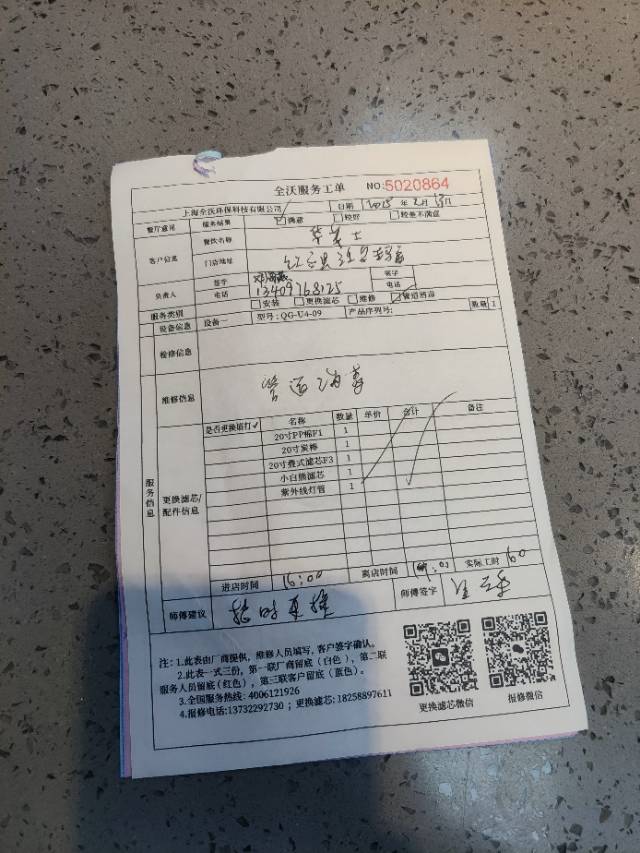 全沃服务工单 NO:5020864
上海全沃环保科技有限公司 日期 年 2 月 日
餐厅意见 服务结果 满意 较好 较差不满意
客户信息 餐饮名称 华莱士
门店地址
负责人 签字 签字
电话 13409768125 电话
服务类别 安装 更换滤芯 维修 管道消毒
设备信息 设备一 型号:QG-U4-09 产品序列号: 数量 1
检修信息
维修信息 管道消毒
服务信息
更换滤芯/配件信息
是否更换填打✓ 名称 数量 单价 合计 备注
20寸PP棉F1 1
20寸炭棒 1
20寸叠式滤芯F3 1
小白熊滤芯 1
紫外线灯管 1
进店时间 16:00 离店时间 实际工时 60
师傅建议 按时更换 师傅签字
注:1.此表由厂商提供,维修人员填写,客户签字确认。
2.此表一式三份,第一联厂商留底(白色),第二联
服务人员留底(红色),第三联客户留底(蓝色)。
3.全国服务热线:4006121926
4.报修电话:13732292730 ;更换滤芯:18258897611
更换滤芯微信 报修微信